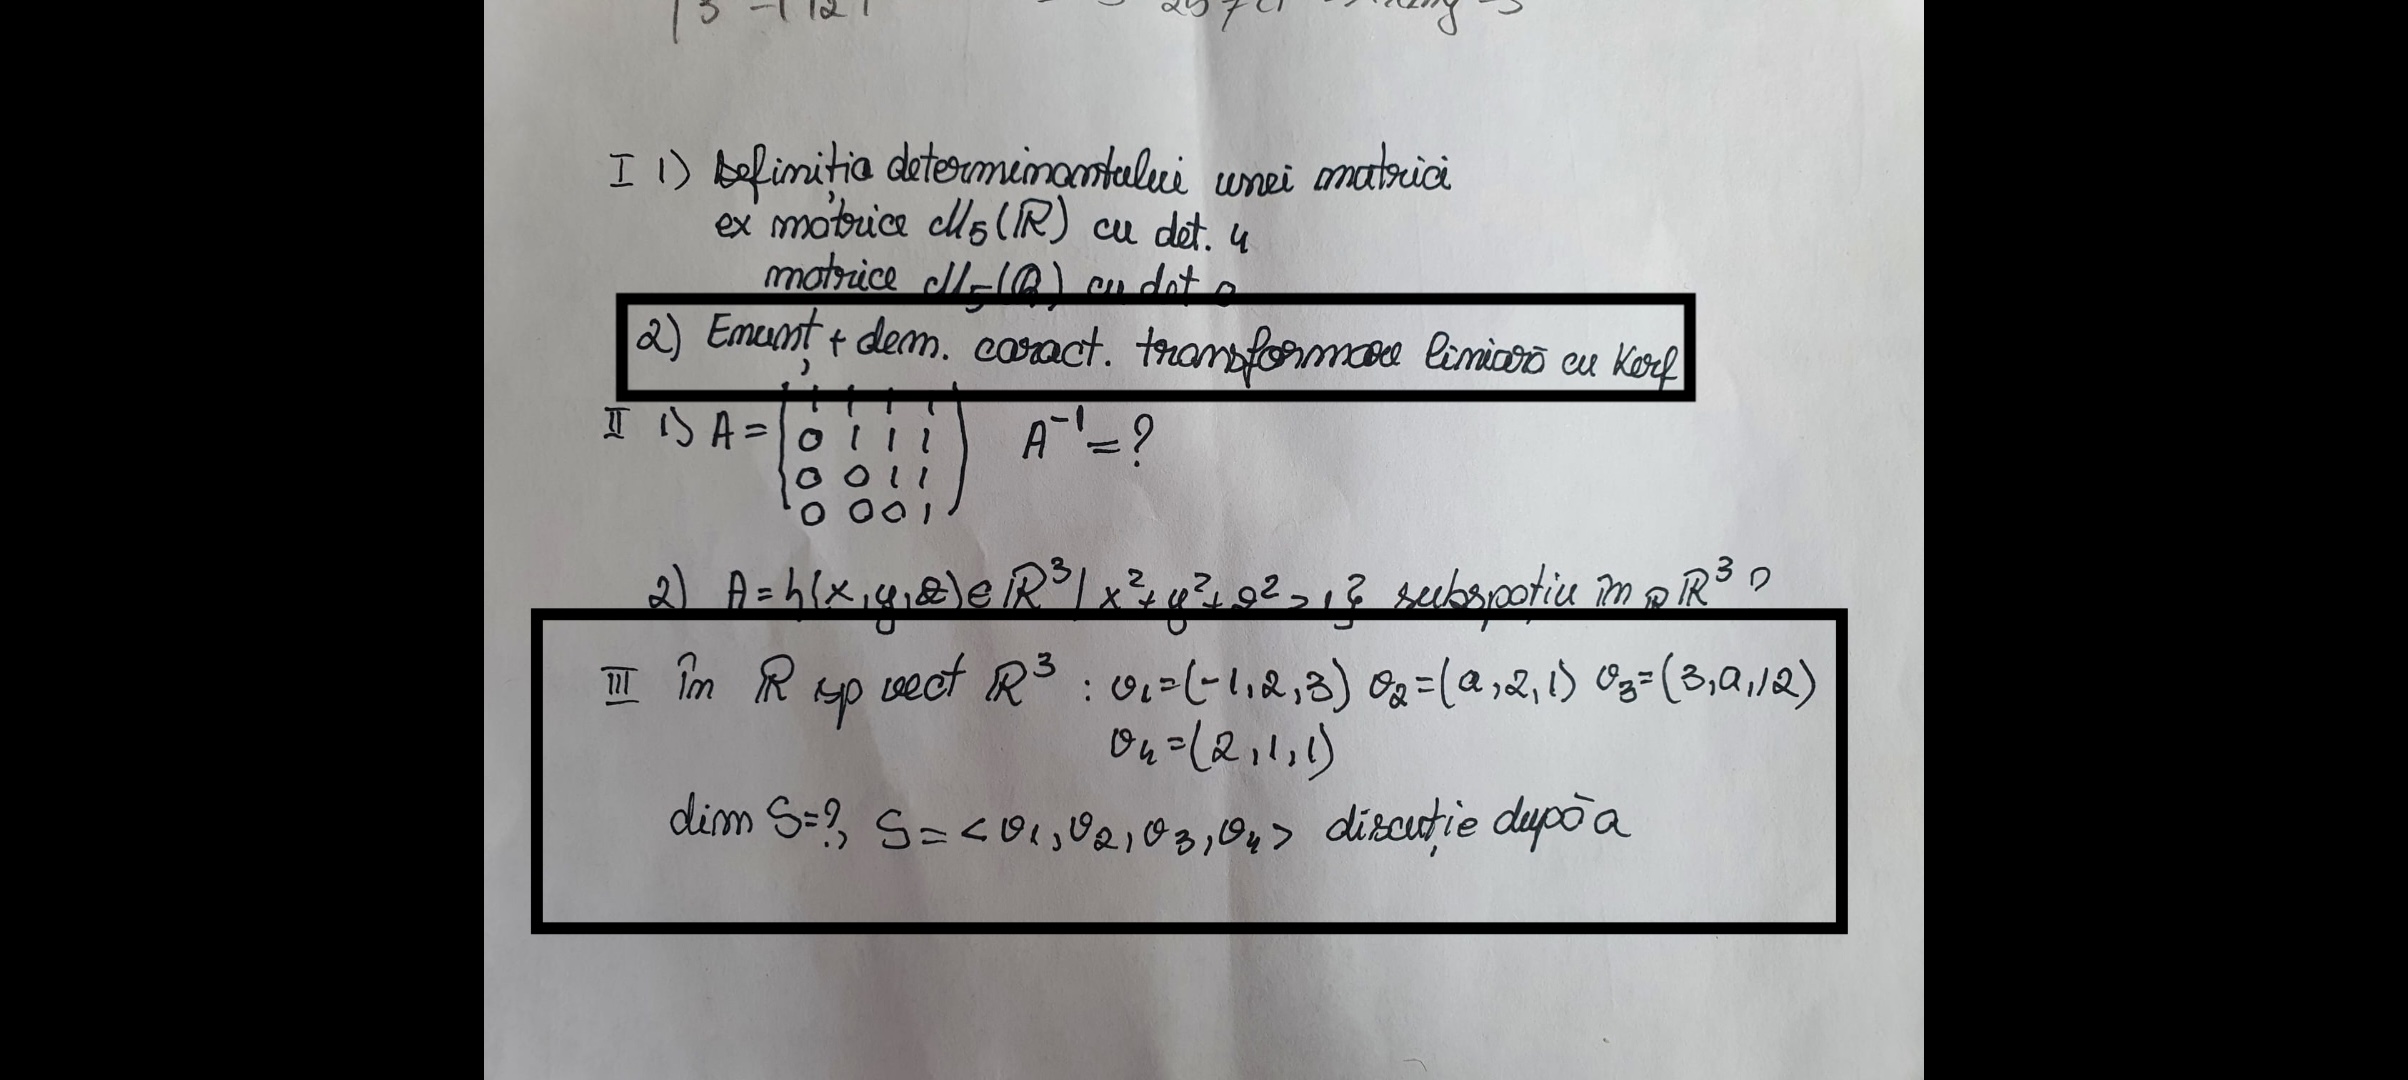 I 1) Definiția determinantului unei matrici
ex matrice M₅(R) cu det. 4
matrice M₅(Q) cu det
2) Enunț + dem. caract. transformare liniară cu Kerf
II 1) A = ( 1 1 1 1
0 1 1 1
0 0 1 1
0 0 0 1 ) A⁻¹ = ?
2) A = {(x, y, z) ∈ R³ | x² + y² + z² > 1} subspațiu în R R³ ?
III în R sp vect R³ : v₁=(-1,2,3) v₂=(a,2,1) v₃=(3,a,12)
v₄=(2,1,1)
dim S=?, S = <v₁, v₂, v₃, v₄> discuție după a